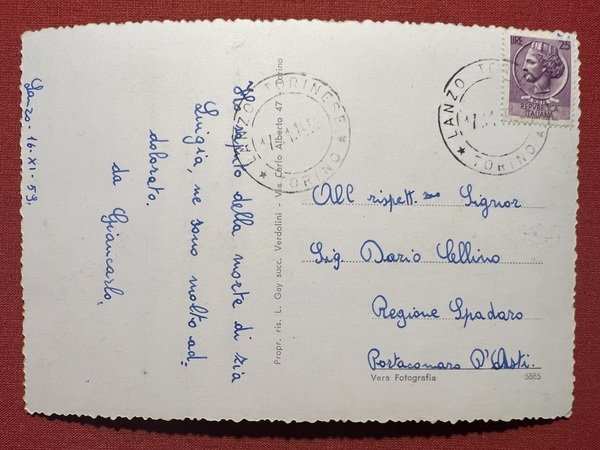 Lanzo - 16 - XI - 59.
Ho saputo della morte di zia
Luigia, ne sono molto ad-
dolorato.
da Giancarlo.
Propr. ris. L. Gay succ. Verdolini - Via Carlo Alberto 47 - Torino
LANZO TORINESE
* TORINO *
LIRE 25
REPUBBLICA
ITALIANA
LANZO TO
* TORINO *
All rispett. mo Signor
Sig. Dario Cellino
Regione Spadaro
Portacomaro D'Asti.
Vera Fotografia
5885